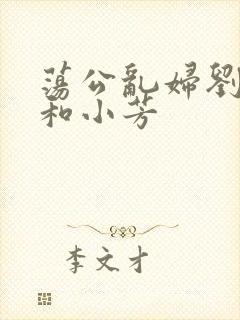 蕩公亂婦劉
和小芳
李文才